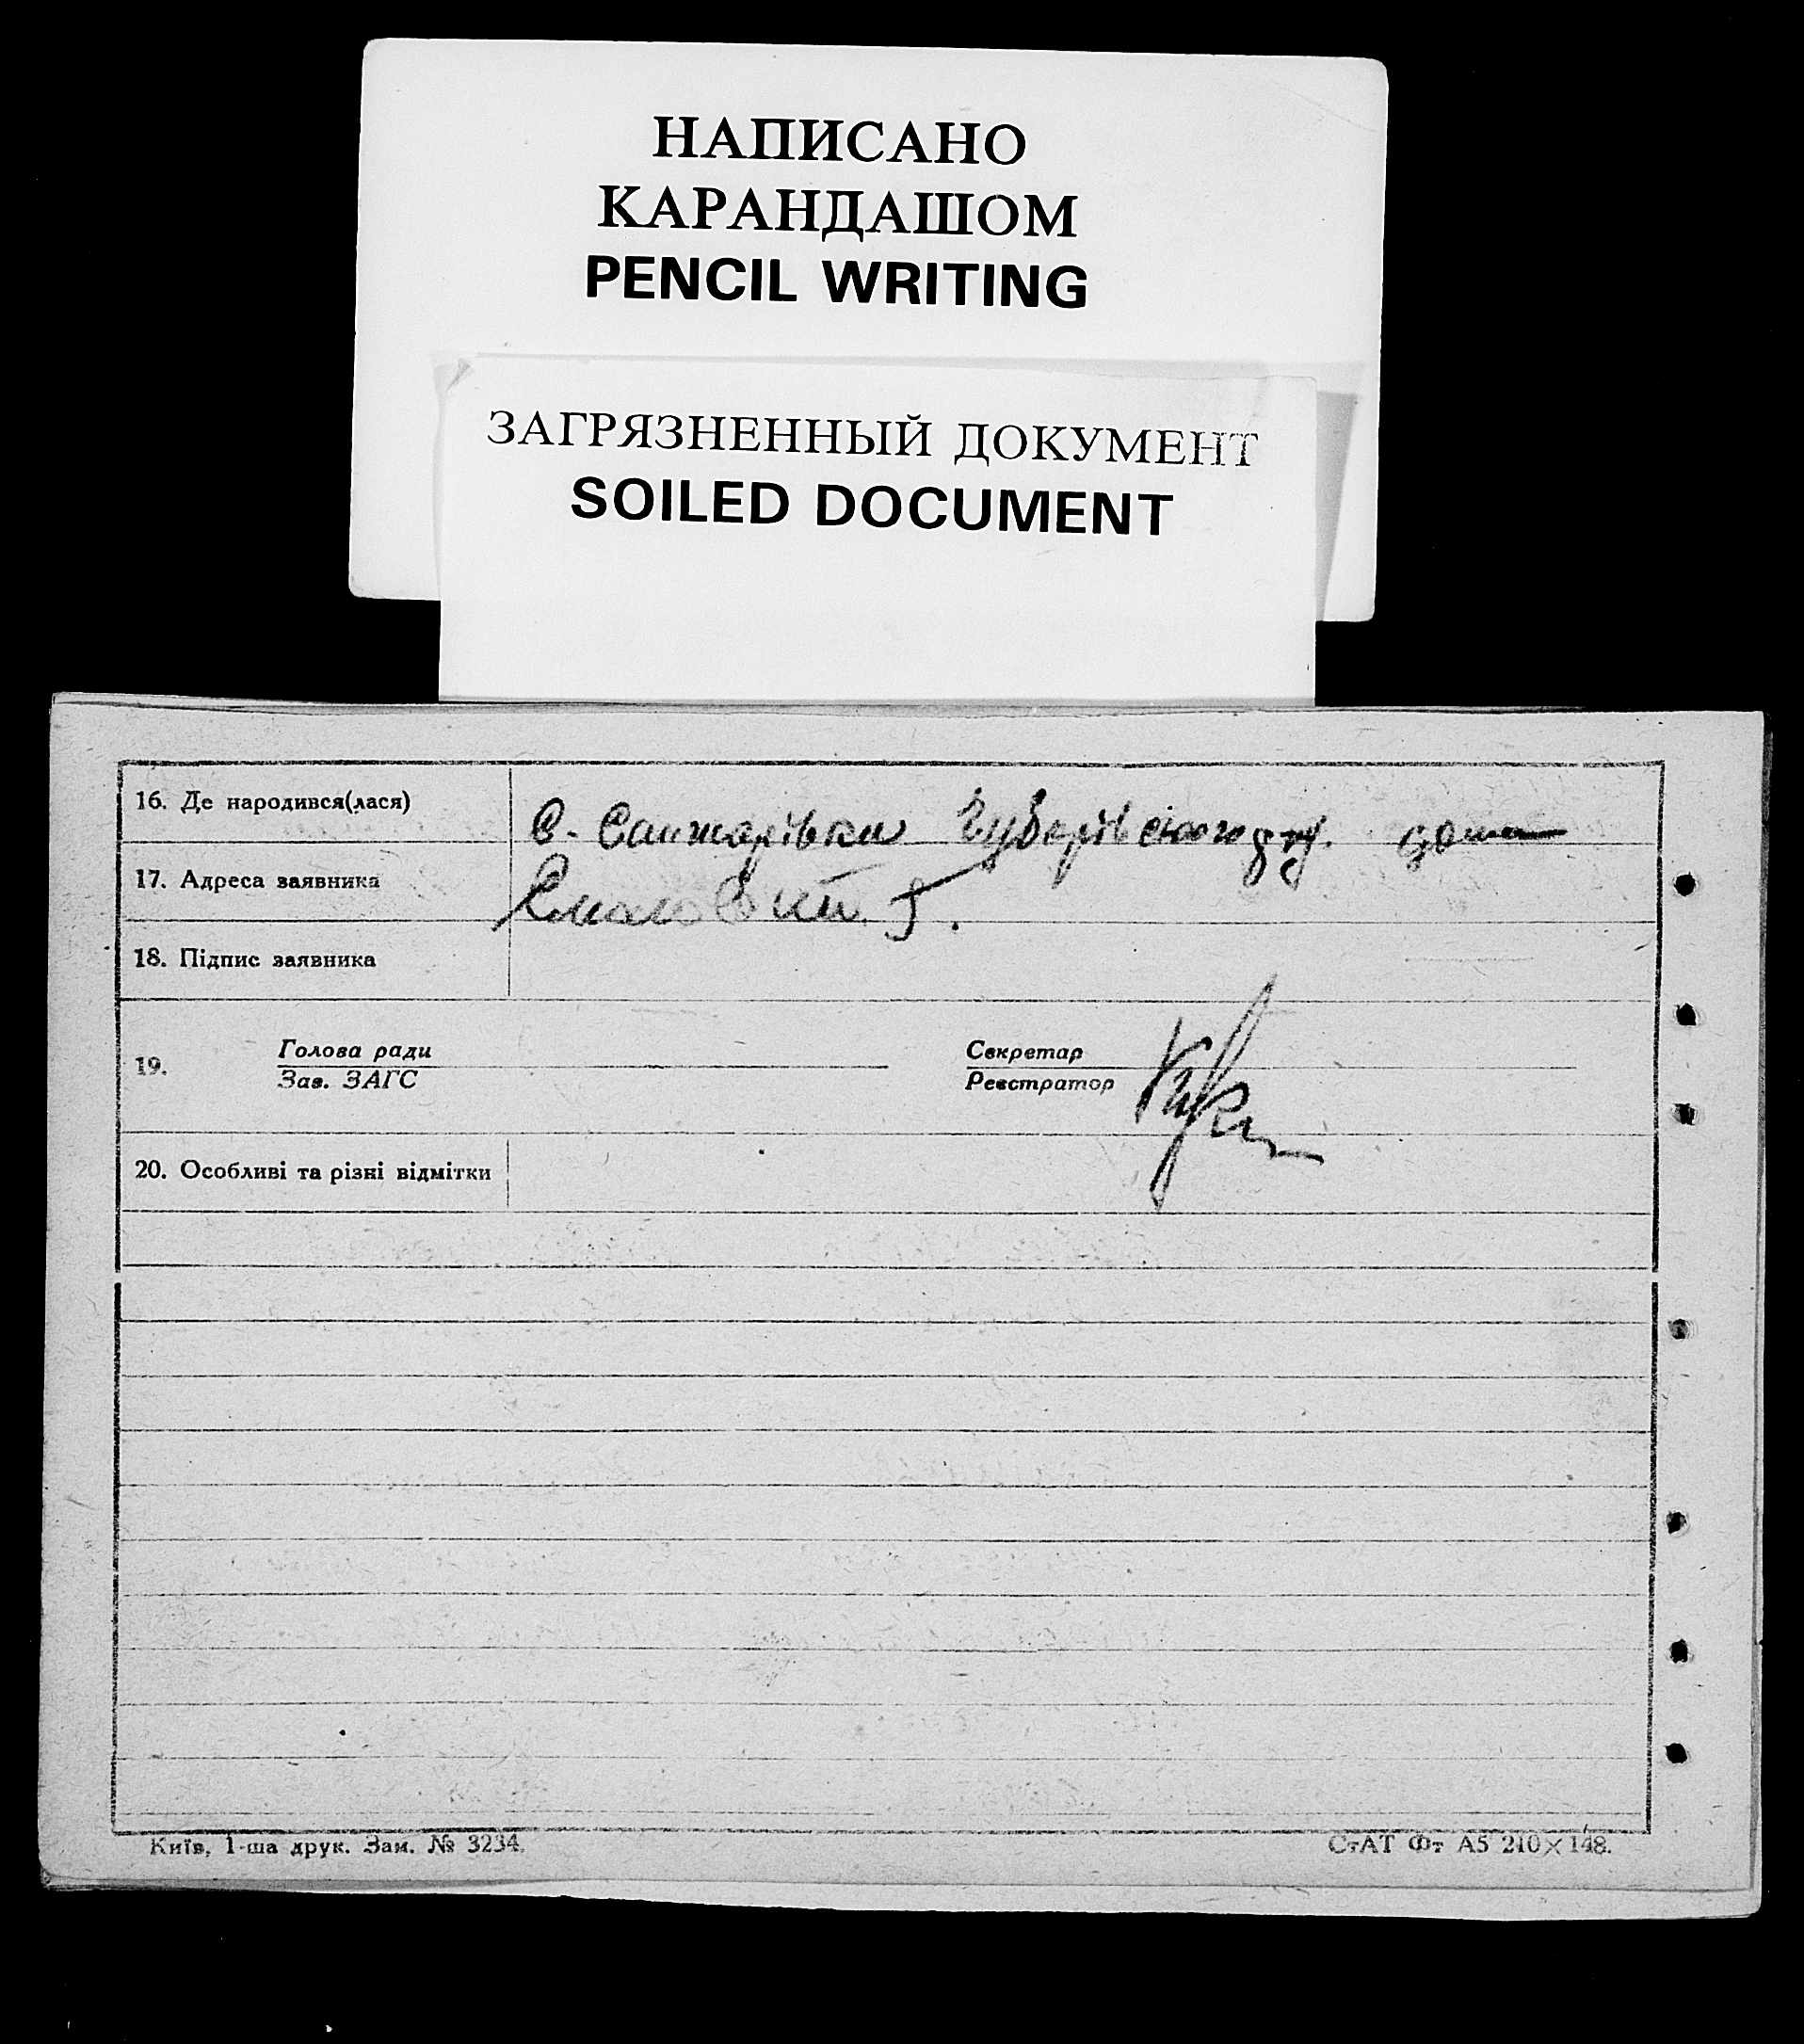 НАПИСАНО
КАРАНДАШОМ
PENCIL WRITING
ЗАГРЯЗНЕННЫЙ ДОКУМЕНТ
SOILED DOCUMENT
16. Де народився(лася)
С.
17. Адреса заявника
18. Підпис заявника
19. Голова ради Секретар
Зав. ЗАГС Реєстратор
20. Особливі та різні відмітки
Київ, 1-ша друк. Зам. № 3234.
СтАТ Фт А5 210×148.